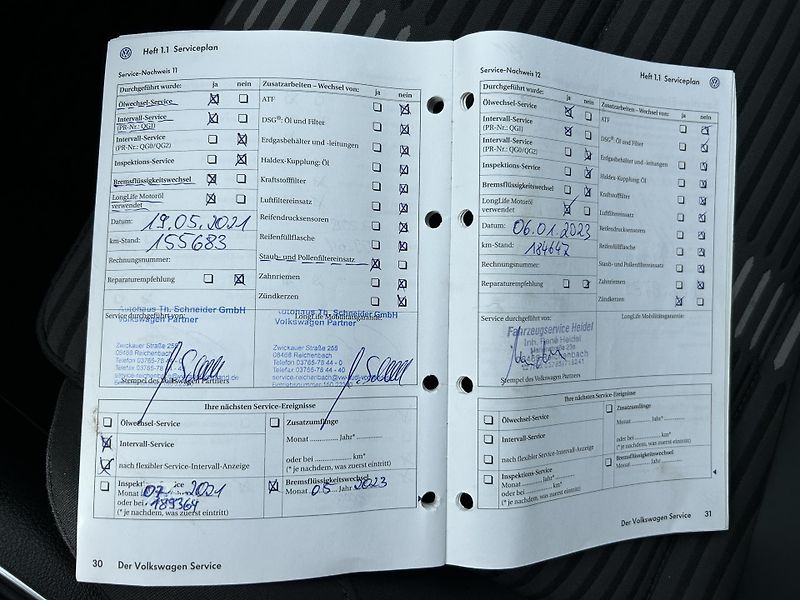 Heft 1.1 Serviceplan
Service-Nachweis 11
Durchgeführt wurde: ja nein
Ölwechsel-Service
Intervall-Service
(PR-Nr.: QG1)
Intervall-Service
(PR-Nr.: QG0/QG2)
Inspektions-Service
Bremsflüssigkeitswechsel
LongLife Motoröl
verwendet
Datum: 19.05.2021
km-Stand: 155683
Rechnungsnummer:
Reparaturempfehlung
Zusatzarbeiten – Wechsel von: ja nein
ATF
DSG®: Öl und Filter
Erdgasbehälter und -leitungen
Haldex-Kupplung: Öl
Kraftstofffilter
Luftfiltereinsatz
Reifendrucksensoren
Reifenfüllflasche
Staub- und Pollenfiltereinsatz
Zahnriemen
Zündkerzen
Service durchgeführt von:
Autohaus Th. Schneider GmbH
Volkswagen Partner
Zwickauer Straße 255
08468 Reichenbach
Telefon 03765-78 44 - 0
Stempel des Volkswagen Partners
LongLife Mobilitätsgarantie:
Volkswagen Partner
Zwickauer Straße 255
08468 Reichenbach
Telefon 03765-78 44 - 0
Telefax 03765-78 44 - 40
Ihre nächsten Service-Ereignisse
Ölwechsel-Service
Intervall-Service
nach flexibler Service-Intervall-Anzeige
Monat 07 2021
oder bei 189364
(* je nachdem, was zuerst eintritt)
Zusatzumfänge
Monat Jahr*
oder bei km*
(* je nachdem, was zuerst eintritt)
Bremsflüssigkeitswechsel
Monat 05 Jahr 2023
30 Der Volkswagen Service
Heft 1.1 Serviceplan
Service-Nachweis 12
Durchgeführt wurde: ja nein
Ölwechsel-Service
Intervall-Service
(PR-Nr.: QG1)
Intervall-Service
(PR-Nr.: QG0/QG2)
Inspektions-Service
Bremsflüssigkeitswechsel
LongLife Motoröl
verwendet
Datum: 06.01.2023
km-Stand: 184647
Rechnungsnummer:
Reparaturempfehlung
Zusatzarbeiten – Wechsel von: ja nein
ATF
DSG®: Öl und Filter
Erdgasbehälter und -leitungen
Haldex-Kupplung: Öl
Kraftstofffilter
Luftfiltereinsatz
Reifendrucksensoren
Reifenfüllflasche
Staub- und Pollenfiltereinsatz
Zahnriemen
Zündkerzen
Service durchgeführt von:
Fahrzeugservice Heidel
Inh. René Heidel
Stempel des Volkswagen Partners
LongLife Mobilitätsgarantie:
Ihre nächsten Service-Ereignisse
Ölwechsel-Service
Intervall-Service
nach flexibler Service-Intervall-Anzeige
Inspektions-Service
Monat Jahr*
oder bei km*
(* je nachdem, was zuerst eintritt)
Zusatzumfänge
Monat Jahr*
oder bei km*
(* je nachdem, was zuerst eintritt)
Bremsflüssigkeitswechsel
Monat Jahr
Der Volkswagen Service 31